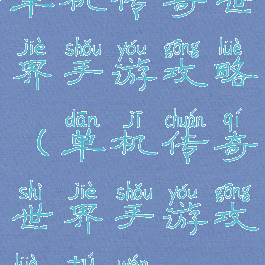 单机传奇世
jiè shǒu yóu gōng lüè
界手游攻略
dān jī chuán qí
（单机传奇
shì jiè shǒu yóu gōng
世界手游攻